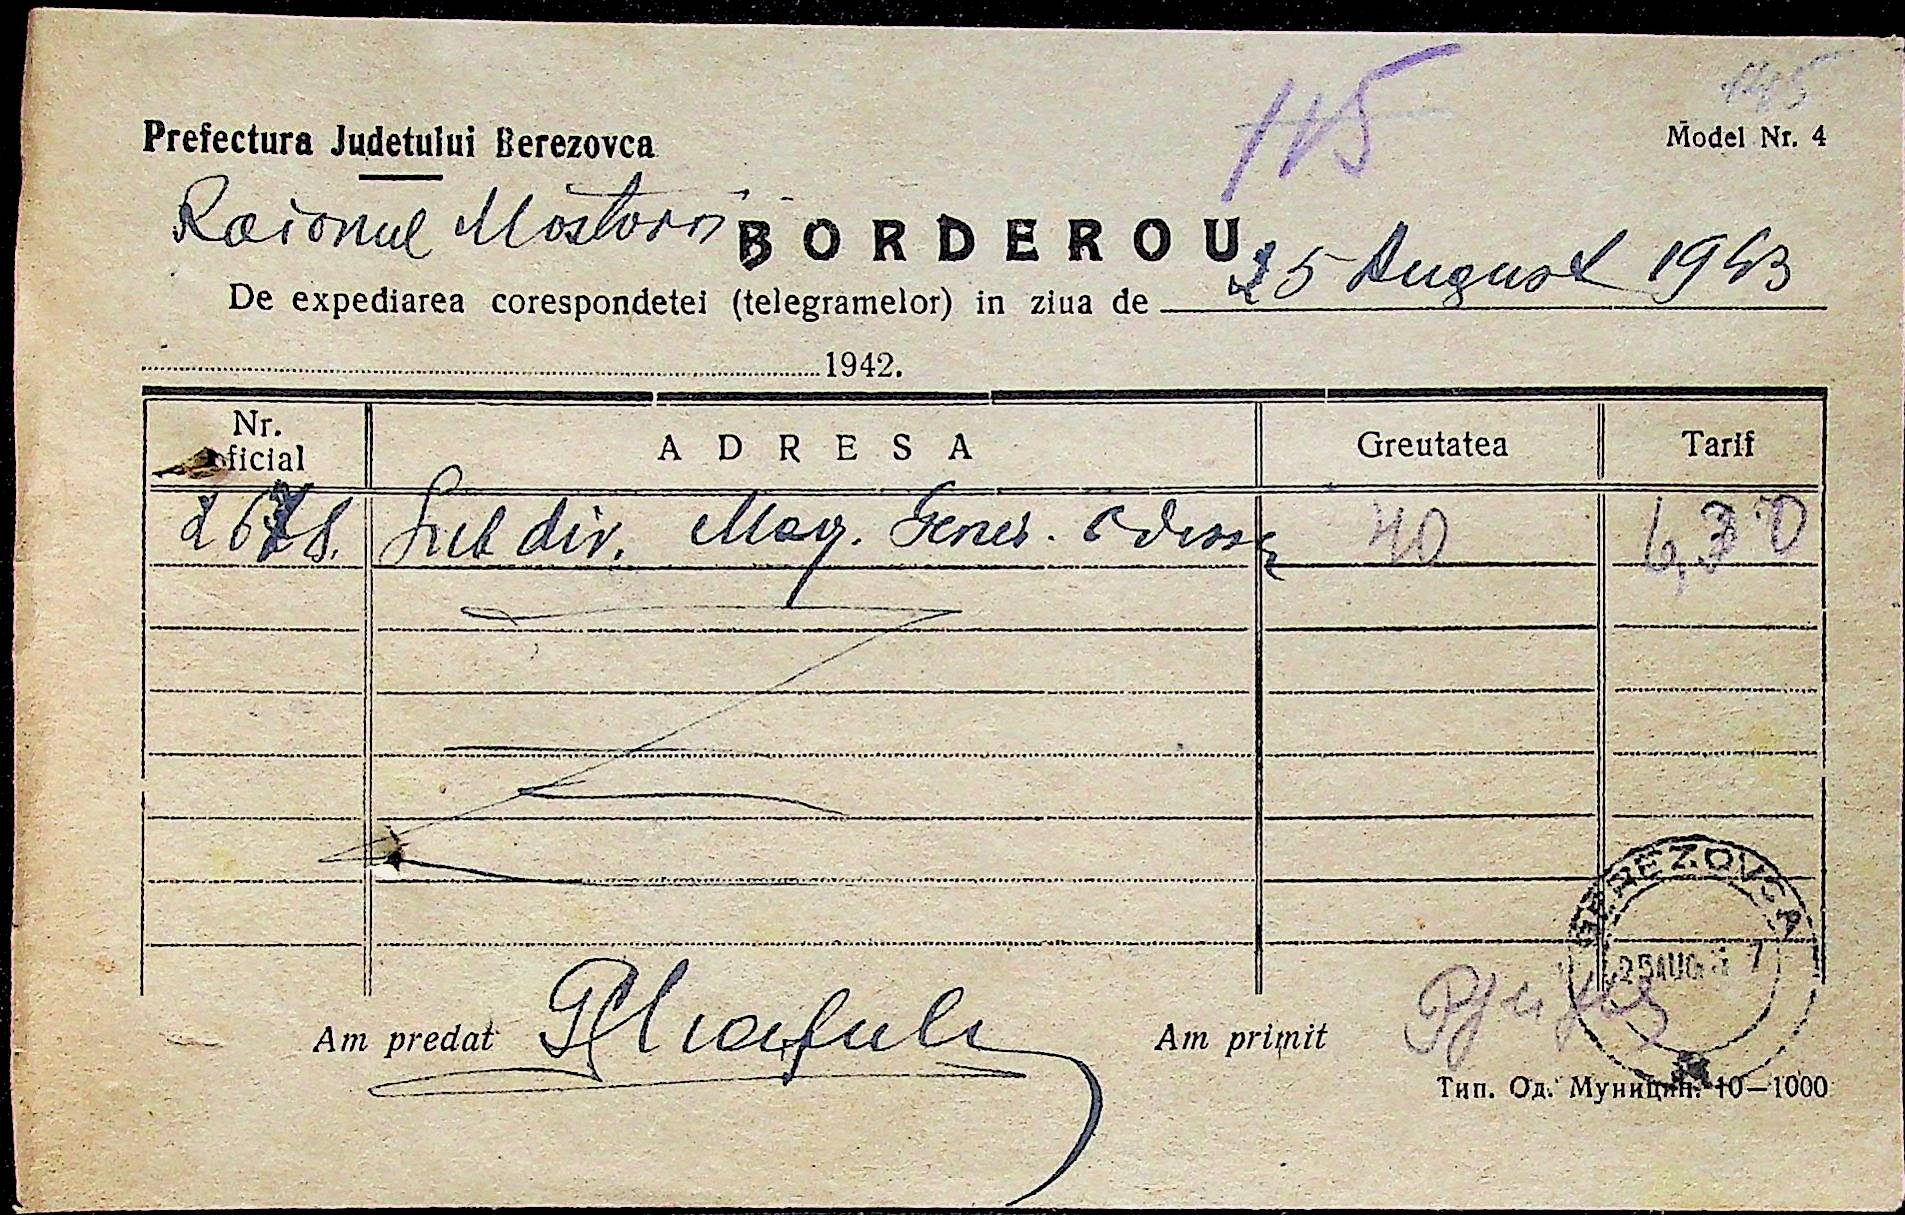 115
Prefectura Judetului Berezovca
Model Nr. 4
Raionul Mostovoi
BORDEROU
25 August 1943
De expediarea corespondetei (telegramelor) in ziua de
1942.
Nr. oficial
ADRESA
Greutatea
Tarif
2678. Sub div. Mag. Gener. Odessa 40 6,30
BEREZOVCA
25 AUG 7
Am predat
Am primit
Тип. Од. Муницип. 10—1000